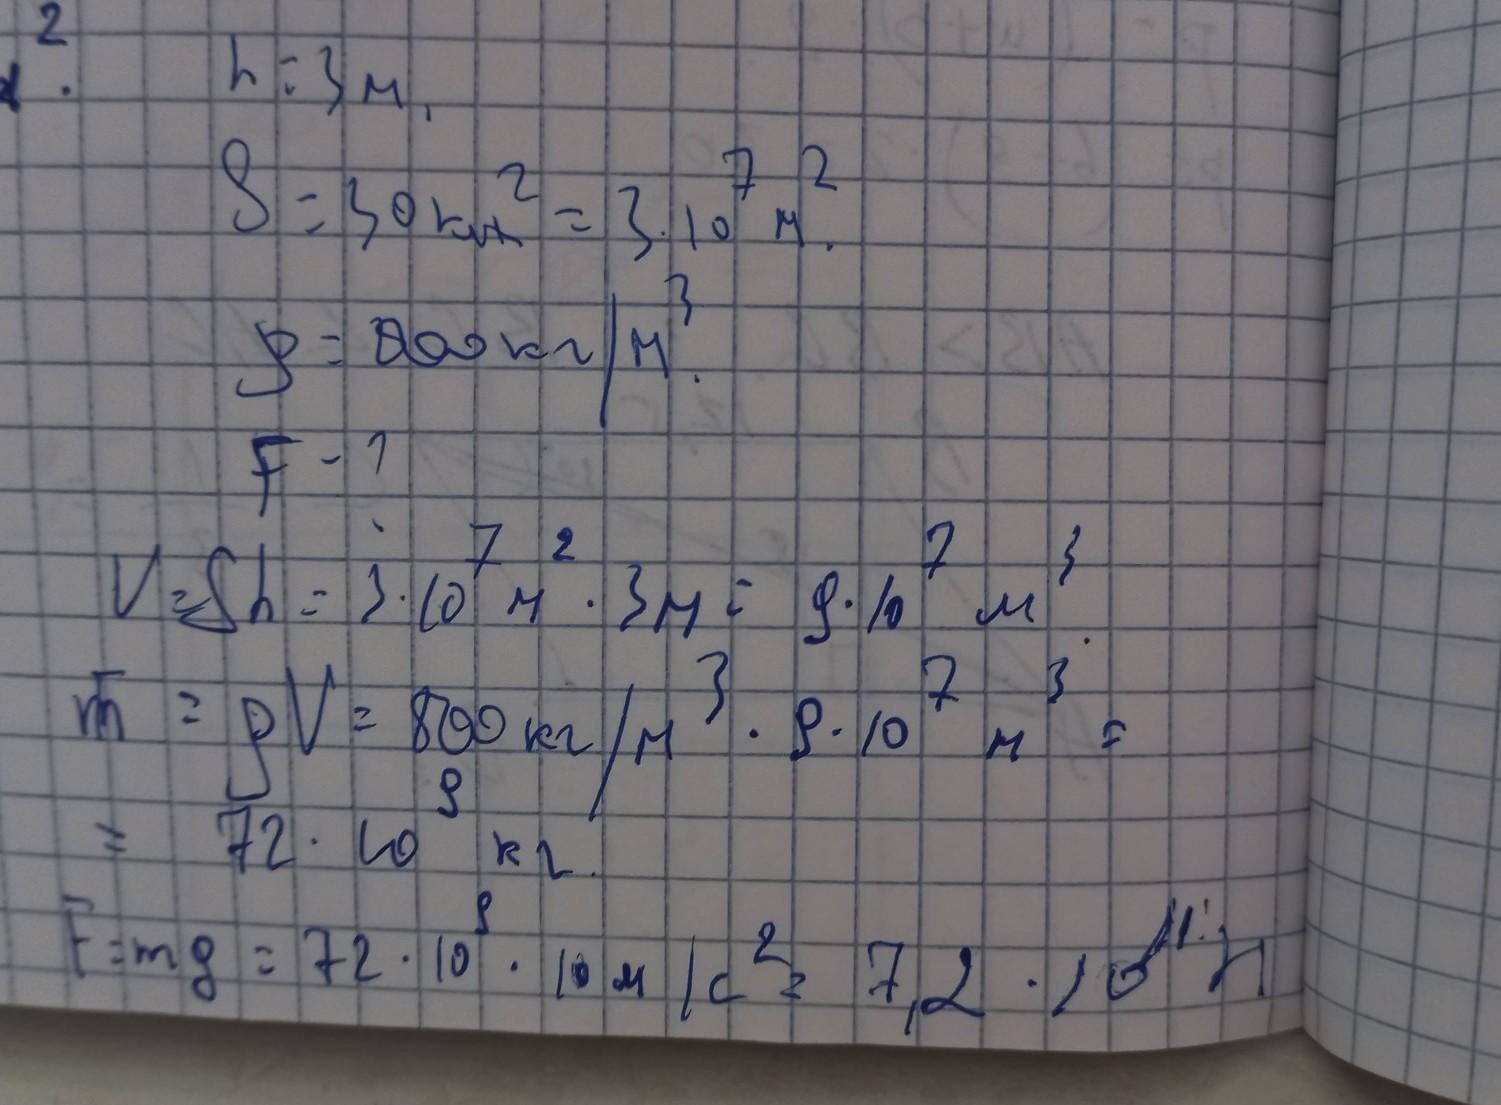 2.
h = 3 м.
S = 30 км² = 3·10⁷ м².
ρ = 800 кг/м³.
F - ?
V = Sh = 3·10⁷ м² · 3м = 9·10⁷ м³.
m = ρV = 800 кг/м³ · 9·10⁷ м³ =
= 72·10⁹ кг.
F = mg = 72·10⁹ · 10 м/с² = 7,2 · 10¹¹ Н